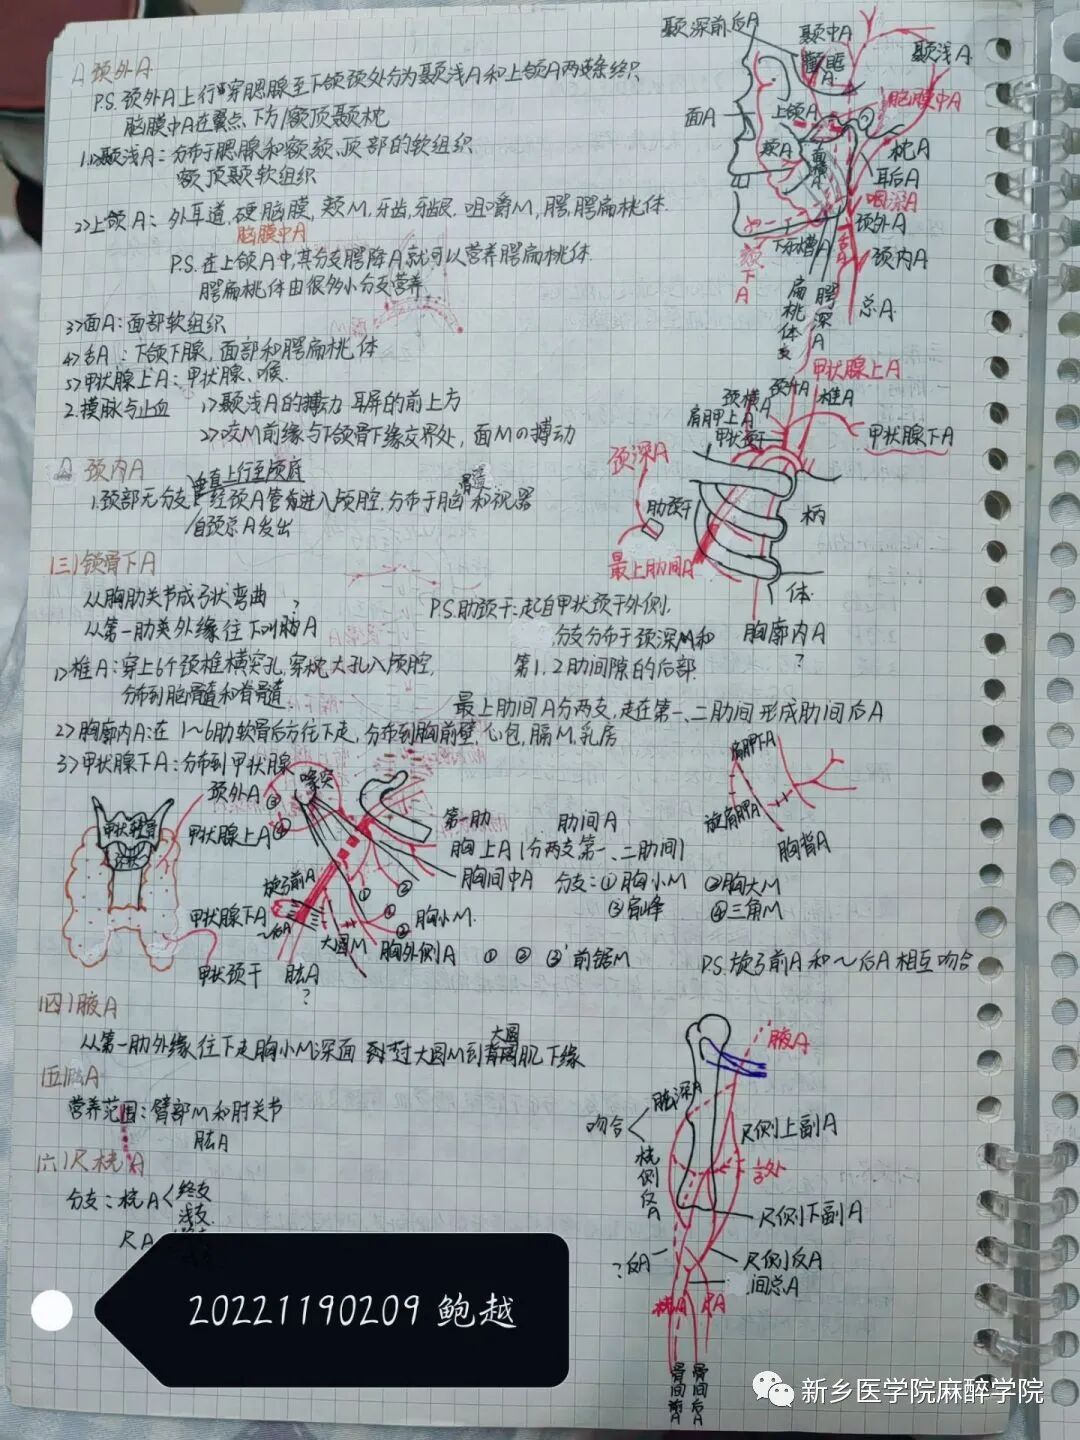 颈外A
P.S. 颈外A上行穿腮腺至下颌颈处分为颞浅A和上颌A两支终末
脑膜中A在翼点、下方/额顶颞枕
1.1>颞浅A：分布于腮腺和额颞、顶部的软组织
额顶颞软组织
2>上颌A：外耳道,硬脑膜,颊M,牙齿,牙龈.咀嚼M,腭,腭扁桃体.
脑膜中A
P.S. 在上颌A中,其分支腭降A就可以营养腭扁桃体.
腭扁桃体由很多小分支营养
3>面A：面部软组织
4>舌A：下颌下腺,面部和腭扁桃体
5>甲状腺上A：甲状腺、喉.
2.摸脉与止血 1>颞浅A的搏动 耳屏的前上方
2>咬M前缘与下颌骨下缘交界处,面M的搏动
颈内A
垂直上行至颅底
1.颈部无分支 经颈A管进入颅腔,分布于脑和视器
自颈总A发出
(三)锁骨下A
从胸肋关节成弓状弯曲 ?
从第一肋外缘往下叫腋A
P.S.肋颈干:起自甲状颈干外侧,
分支分布于颈深M和
第1、2肋间隙的后部.
1>椎A：穿上6个颈椎横突孔,穿枕大孔入颅腔,
分布到脑脊髓和脊髓.
最上肋间A分两支,走在第一、二肋间形成肋间后A
2>胸廓内A:在1~6肋软骨后方往下走,分布到胸前壁,心包,膈M,乳房
3>甲状腺下A：分布到甲状腺
颞深前后A
颞中A
颞浅A
脑膜中A
面A
上颌A
颊A
枕A
耳后A
咽深A
颈外A
颈内A
舌A
颏下A
扁桃体支
腭深A
总A
甲状腺上A
颈横A
颈外A
椎A
肩胛上A
甲状颈干
甲状腺下A
颈深A
肋颈干
柄
最上肋间A
体
胸廓内A
?
颈外A
喙突
甲状软骨
甲状腺上A
旋弓前A
甲状腺下A
~后A
大圆M
甲状颈干
肱A
?
第一肋
肋间A
胸上A(分两支第一、二肋间)
胸间中A 分支:①胸小M ②胸大M
③肩峰 ④三角M
胸小M.
胸外侧A ① ② ③ 前锯M
肩胛下A
旋肩胛A
胸背A
P.S.旋弓前A和~后A相互吻合
(四)腋A
从第一肋外缘往下走胸小M深面 过大圆M到大圆肌下缘
(五)肱A
营养范围:臂部M和肘关节
肱A
(六)尺桡A
分支:桡A<终支
浅支.
尺A
腋A
肱深A
吻合
尺侧上副A
桡侧反A
尺侧下副A
?反A
尺侧反A
间总A
桡A
尺A
骨间前A
骨间后A
20221190209 鲍越
新乡医学院麻醉学院